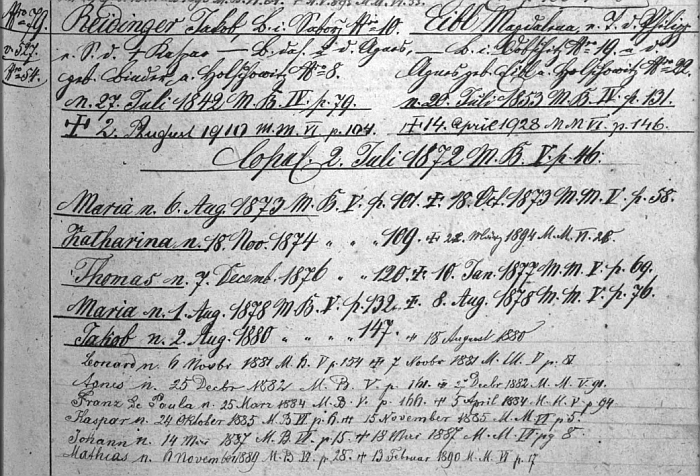 Nro 79. Reidinger Jakob, B. i. Nro 10. Eibl Magdalena, e. T. d. Philipp
v. S. d. † Kaspar — B. des. u. d. Agnes, — B. i. Nro 19. u. d.
Nro 54. geb. Binder a. Holschowitz Nro 8. Agnes geb. Eibl a. Holschowitz Nro 22.
n. 27. Juli 1842 M. B. IV. p. 79. n. 20. Juli 1853 M. B. IV. p. 131.
† 2. August 1910 M. M. VI p. 104. † 14. April 1928 M M VI. p. 146.
Copul. 2. Juli 1872 M. B. V. p. 46.
Maria n. 6. Aug. 1873 M. B. V. p. 101. † 18. Oct. 1873 M. M. V. p. 58.
Katharina n. 18. Nov. 1874 " " " 109. † 22. März 1894 M. M. VI.
Thomas n. 7. Decemb. 1876 " " 120. † 10. Jan. 1877 M. M. V. p. 69.
Maria n. 1. Aug. 1878 M. B. V. p. 132. † 8. Aug. 1878 M. M. V. p. 76.
Jakob n. 2. Aug. 1880 " " " " 147. † 18 August 1880
Leonard n. 6 Novbr 1881 M. B. V p 154 † 7 Novbr 1881 M. M. V p. 81
Agnes n. 25 Decbr 1882 M. B. V. p. 161. † Decbr 1882 M. M. V. 91.
Franz de Paula n. 25 März 1884 M. B. V. p. 166. † 5 April 1884 M. M. V. p 94
Kaspar n. 24 Oktober 1885 M. B VI p. 6. † 15 November 1885 M. M. VI p 5.
Johann n. 14 Mai 1887 M. B. VI. p. 15. † 18 Mai 1887 M. M. VI pg 8.
Mathias n. November 1889 M. B. VI p. 28. † 13 Februar 1890 M. M. VI p. 17